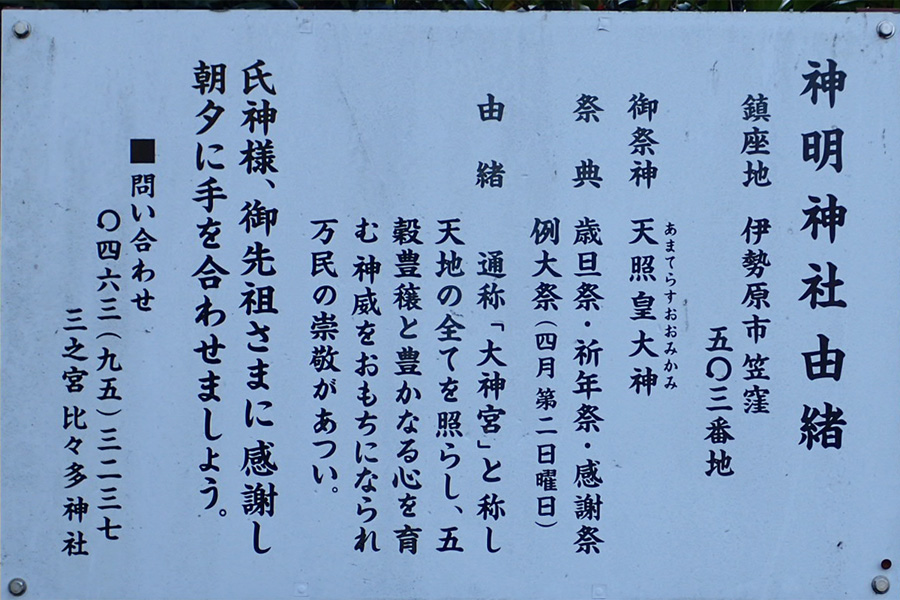 神明神社由緒
鎮座地 伊勢原市笠窪
五〇三番地
御祭神 天照皇大神
あまてらすおおみかみ
祭典 歳旦祭・祈年祭・感謝祭
例大祭(四月 第二日曜日)
由緒 通称「大神宮」と称し
天地の全てを照らし、五
穀豊穣と豊かなる心を育
む神威をおもちになられ
万民の崇敬があつい。
氏神様、御先祖さまに感謝し
朝夕に手を合わせましょう。
■問い合わせ
〇四六三(九五)三二三七
三之宮 比々多神社